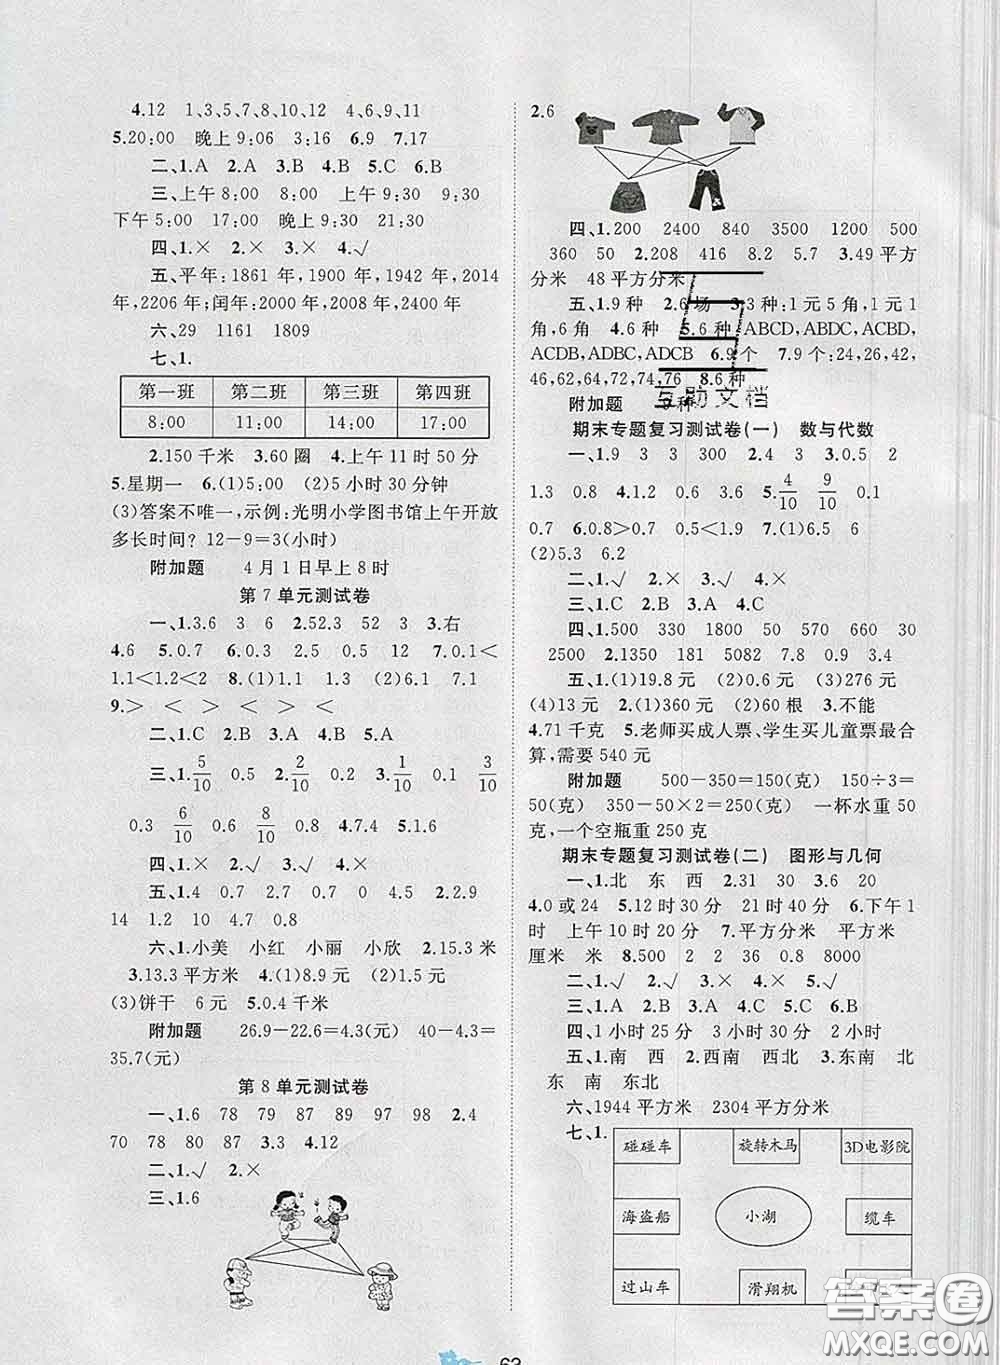 4.12 1、3、5、7、8、10、12 4、6、9、11
5.20:00 晚上9:06 3:16 6.9 7.17
二、1.A 2.A 3.B 4.B 5.C 6.B
三、上午8:00 8:00 上午9:30 9:30
下午5:00 17:00 晚上9:30 21:30
四、1.× 2.× 3.× 4.√
五、平年:1861年,1900年,1942年,2014
年,2206年;闰年:2000年,2008年,2400年
六、29 1161 1809
七、1.
第一班 第二班 第三班 第四班
8:00 11:00 14:00 17:00
2.150千米 3.60圈 4.上午11时50分
5.星期一 6.(1)5:00 (2)5小时30分钟
(3)答案不唯一,示例:光明小学图书馆上午开放
多长时间? 12-9=3(小时)
附加题 4月1日早上8时
第7单元测试卷
一、1.3.6 3 6 2.52.3 52 3 3.右
4.6 5.0.7 6.0.3 2.5 0.5 12 7.0.1<
1.1<1.2<2 8.(1)1.1 1.3 (2)6.1 7.1
9.> < > < <
二、1.C 2.B 3.A 4.B 5.A
三、1.5/10 0.5 2.2/10 0.2 3.1/10 0.1 3/10
0.3 6/10 0.6 8/10 0.8 4.7.4 5.1.6
四、1.× 2.√ 3.√ 4.× 5.×
五、1.4 0.7 0.9 0.9 5 4.1 2.2.9
14 1.2 10 4.7 0.8
六、1.小美 小红 小丽 小欣 2.15.3米
3.13.3平方米 4.(1)8.9元 (2)1.5元
(3)饼干 6元 5.0.4千米
附加题 26.9-22.6=4.3(元) 40-4.3=
35.7(元)
第8单元测试卷
一、1.6 78 79 87 89 97 98 2.4
70 78 80 87 3.3 4.12
二、1.√ 2.× 3.× 4.×
三、1.6
2.6
四、1.200 2400 840 3500 1200 500
360 50 2.208 416 8.2 5.7 3.49平方
分米 48平方分米
五、1.9种 2.6场 3.3种:1元5角,1元1
角,6角 4.6种 5.6种 ABCD,ABDC,ACBD,
ACDB,ADBC,ADCB 6.9个 7.9个:24,26,42,
46,62,64,72,74,76 8.6种
附加题 9种
互助文档
期末专题复习测试卷(一) 数与代数
一、1.9 3 3 300 2.4 3 3.0.5 2
1.3 0.8 4.1.2 3.6 5.4/10 9/10 0.1
0.7 6.0.8>0.7 0.5<1.9 7.(1)6.5 6
(2)5.3 6.2
二、1.√ 2.× 3.√ 4.×
三、1.C 2.B 3.A 4.C
四、1.500 330 1800 50 570 660 30
2500 2.1350 481 5082 0.8 0.9 3.4
五、1.(1)19.8元 (2)0.6元 (3)276元
(4)13元 2.(1)360元 (2)60根 3.不能
4.71千克 5.老师买成人票、学生买儿童票最合
算,需要540元
附加题 500-350=150(克) 150÷3=
50(克) 350-50×2=250(克) 一杯水重50
克,一个空瓶重250克
期末专题复习测试卷(二) 图形与几何
一、1.北 东 西 2.31 30 3.6 20
4.0或24 5.12时30分 21时40分 6.下午1
时 上午10时20分 7.平方分米 平方米
厘米 米 8.500 2 2 36 0.8 8000
二、1.√ 2.√ 3.× 4.× 5.√
三、1.A 2.B 3.A 4.C 5.C 6.A
四、1小时25分 3小时30分 2小时
五、1.南 西 2.西南 西北 3.东南 北
东 南 东北
六、1944平方米 2304平方分米
七、1.
碰碰车 旋转木马 3D电影院
海盗船 小湖 缆车
过山车 滑翔机
答案圈
MXQE.COM
63